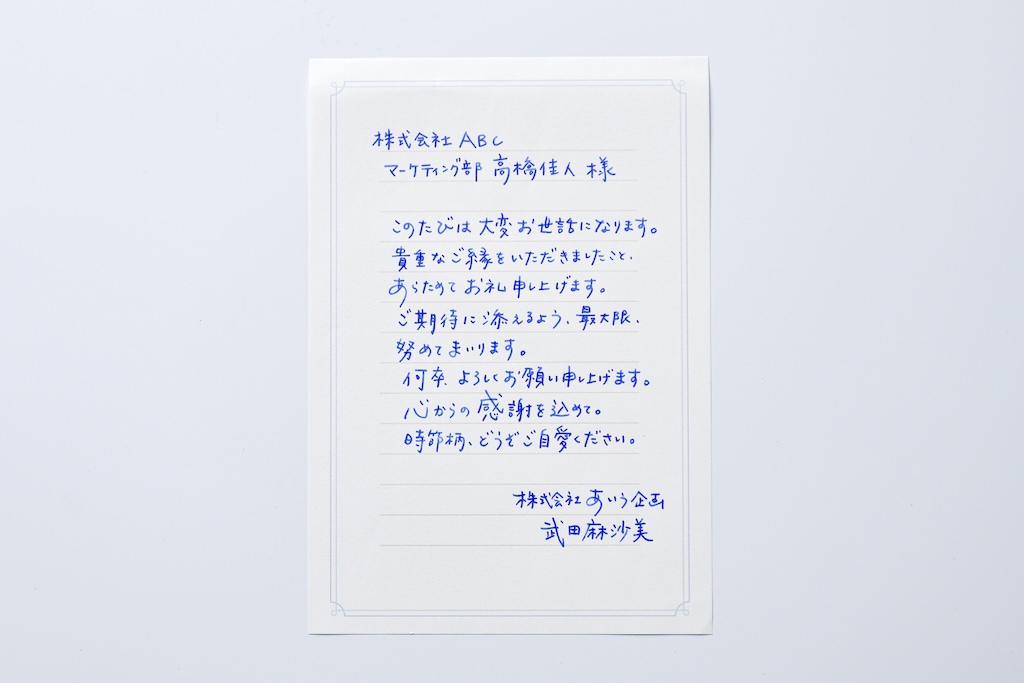 株式会社 ABC
マーケティング部 高橋佳人 様
このたびは 大変 お世話になります。
貴重なご縁をいただきましたこと、
あらためて お礼 申し上げます。
ご期待に添えるよう、最大限、
努めてまいります。
何卒、よろしくお願い申し上げます。
心からの感謝を込めて。
時節柄、どうぞご自愛ください。
株式会社 あいう企画
武田麻沙美